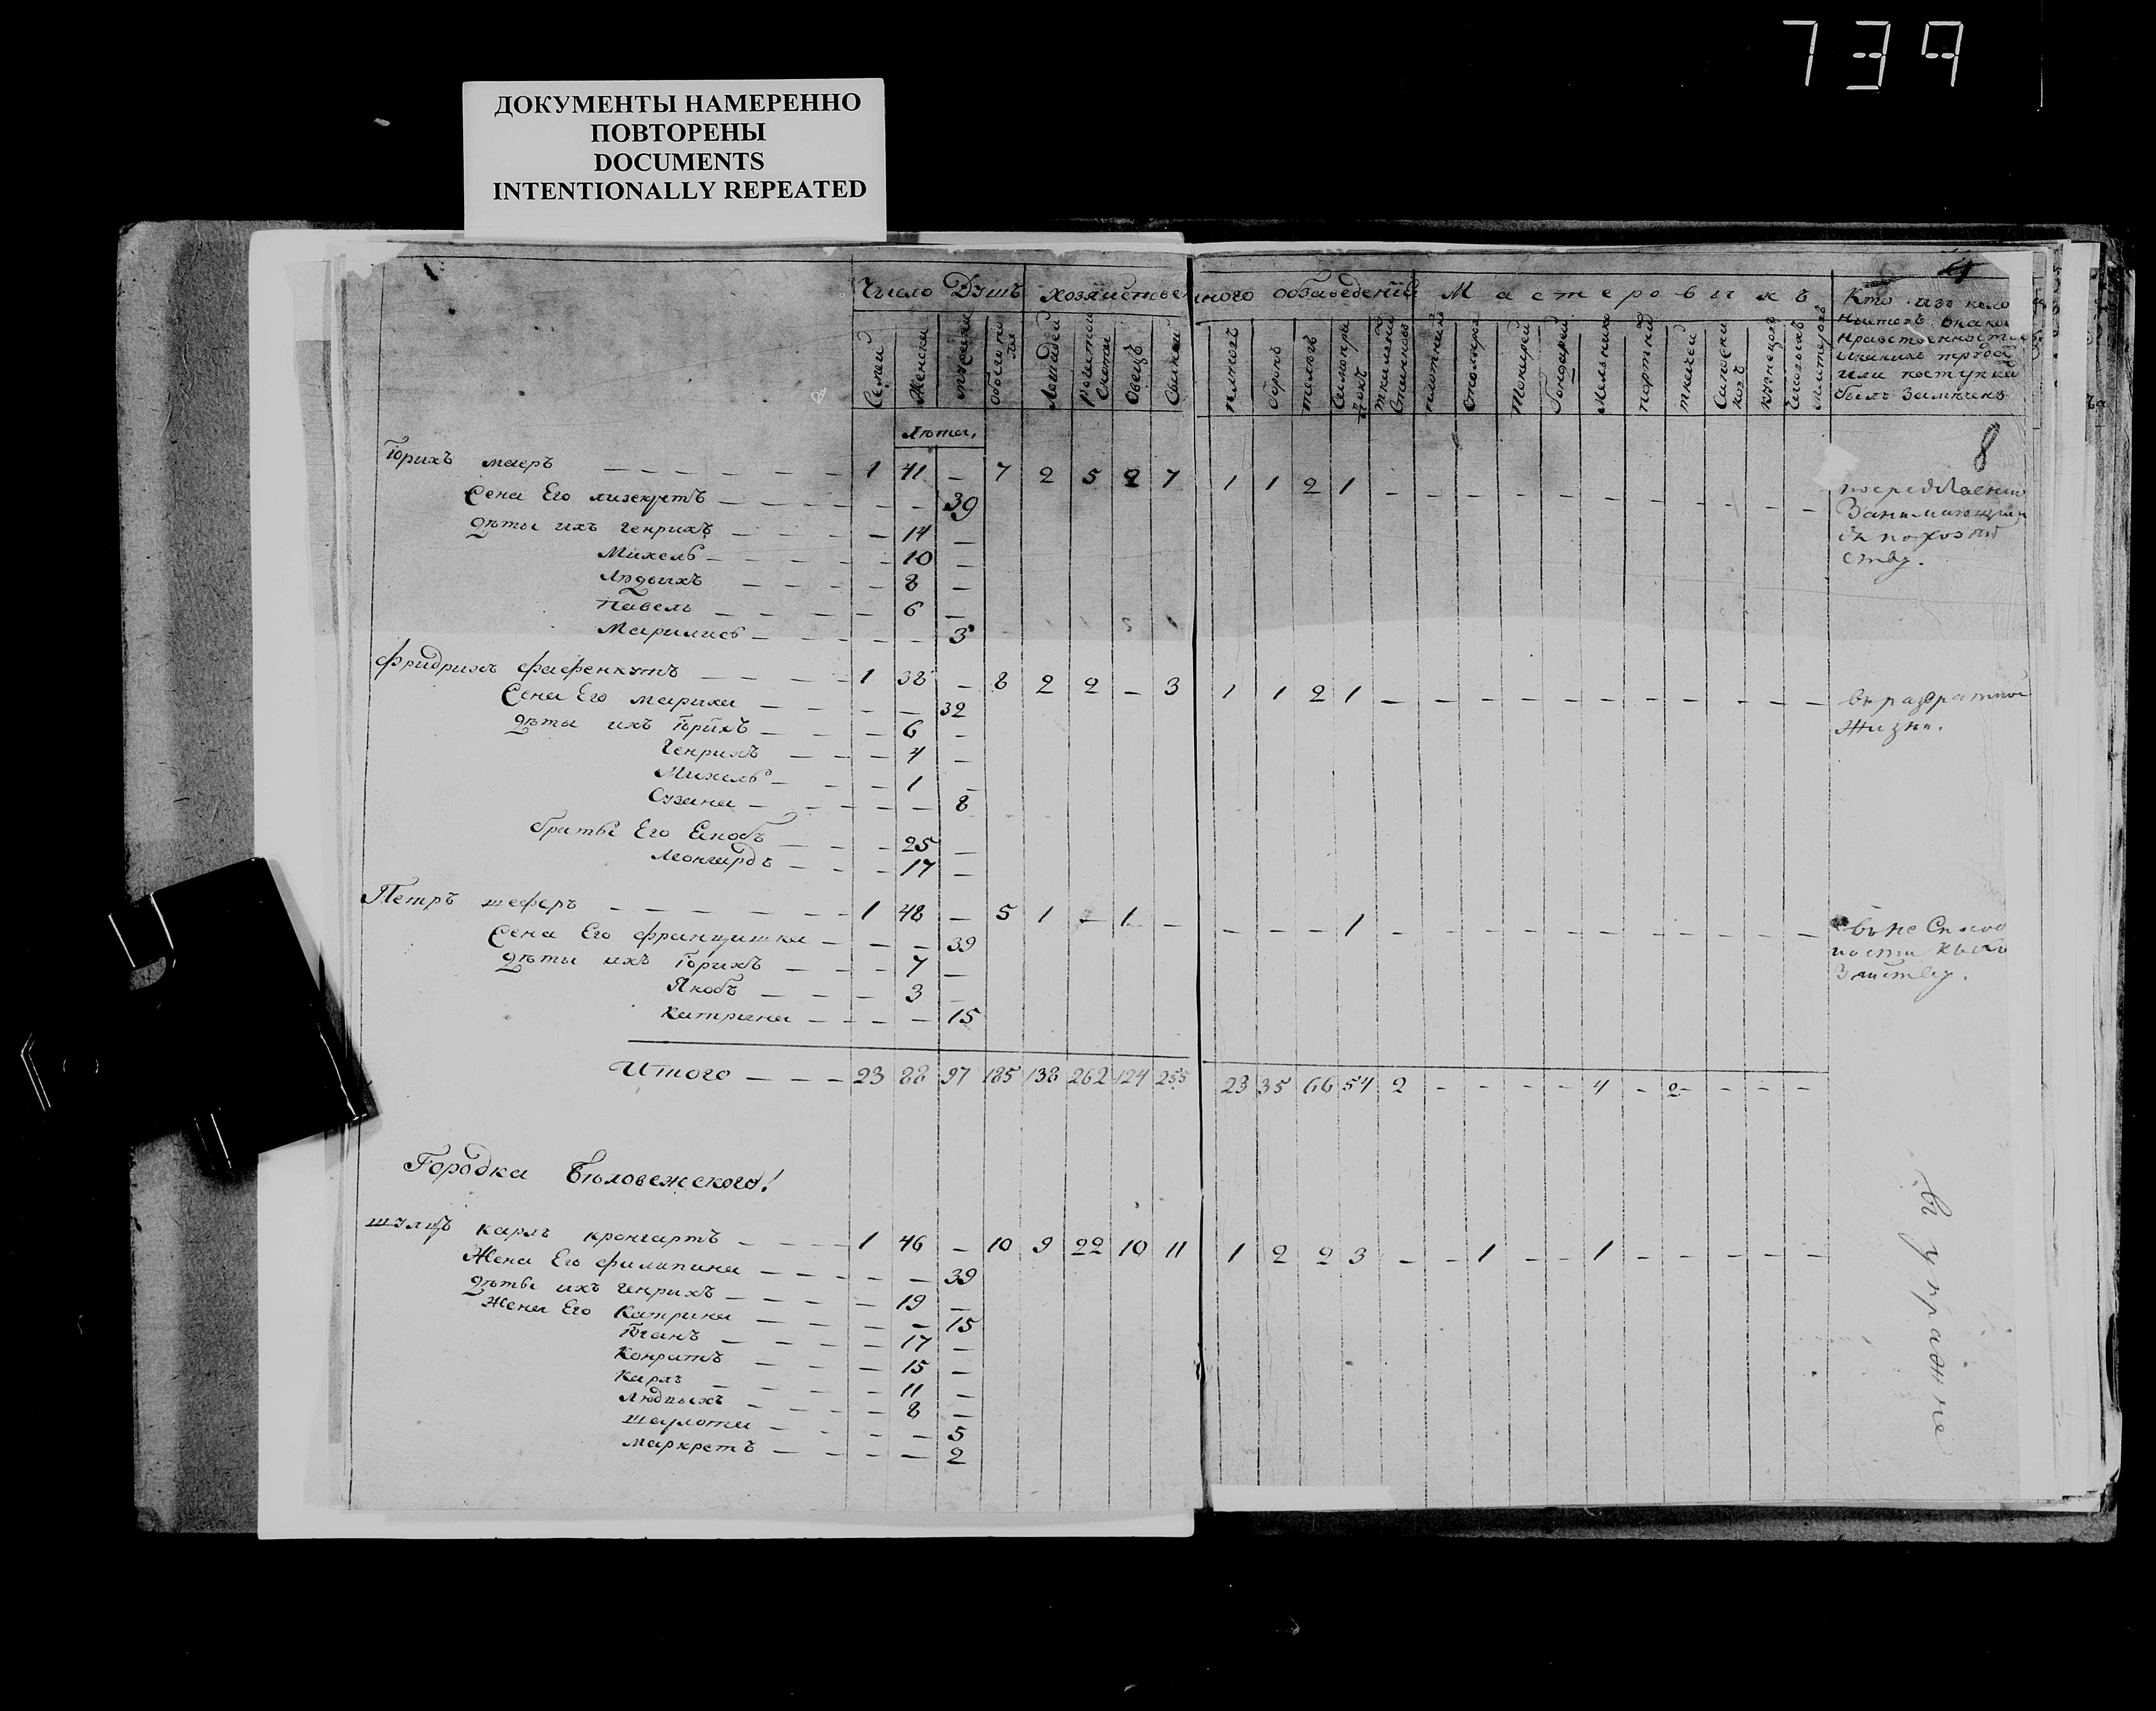 739
ДОКУМЕНТЫ НАМЕРЕННО
ПОВТОРЕНЫ
DOCUMENTS
INTENTIONALLY REPEATED
Число Душъ хозяйственного обзаведенія Мастеровыхъ
Кто изъ коло
нистовъ
нравственности
или поступки
былъ замѣченъ
Семей Женски мужески обоего пола Лошадей рогатой скотъ Овецъ Свиней плуговъ боронъ телегъ Самопрялокъ Столяръ Токарей Бондарей Мельники портныхъ ткачей Сапожниковъ кузнецовъ
Лѣта.
8
Юрихъ маеръ — 1 41 — 7 2 5 2 7 1 1 2 1 — — — — — — — — — — —
посредственно
Занимающий
ся по хозяй
ству.
Сена Его лизекутъ — — — 39
Дѣты ихъ генрихъ — — 14 —
Михель — — 10 —
Людвихъ — — 8 —
Павель — — 6 —
Марилисъ — — — 3
Фридрихъ фафенкутъ — 1 38 — 8 2 2 — 3 1 1 2 1 — — — — — — — — — — —
въ развратной
жизни.
Сена Его мариха — — — 32
Дѣты ихъ Юрихъ — — 6 —
Генрихъ — — 4 —
Михель — — 1 —
Сузана — — — 8
братья Его Якобъ — — 25 —
Леонгардъ — — 17 —
Петръ шеферъ — 1 48 — 5 1 — 1 — — — — 1 — — — — — — — — — — —
въ не Способ
ности къ хо
зяйству.
Сена Его францишка — — — 39
Дѣты ихъ Юрихъ — — 7 —
Якобъ — — 3 —
Катрина — — — 15
Итого — — — 23 88 97 185 138 262 124 255 23 35 66 54 2 — — — — 4 — 2 — — —
Городка Бѣловежского!
шульцъ карлъ кронгартъ — 1 46 — 10 9 22 10 11 1 2 2 3 — — 1 — — 1 — — — — —
Жена Его филипина — — — 39
Дѣты ихъ генрихъ — — 19 —
Жена Его Катрина — — — 15
Юганъ — — 17 —
Конратъ — — 15 —
Карлъ — — 11 —
Людвихъ — — 8 —
шарлота — — — 5
маркретъ — — — 2
въ упражне